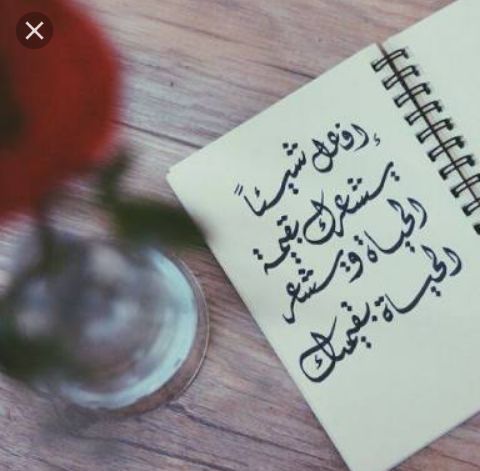 إفعل شيئاً
يشعرك بقيمة
الحياة ويشعر
الحياة بقيمتك